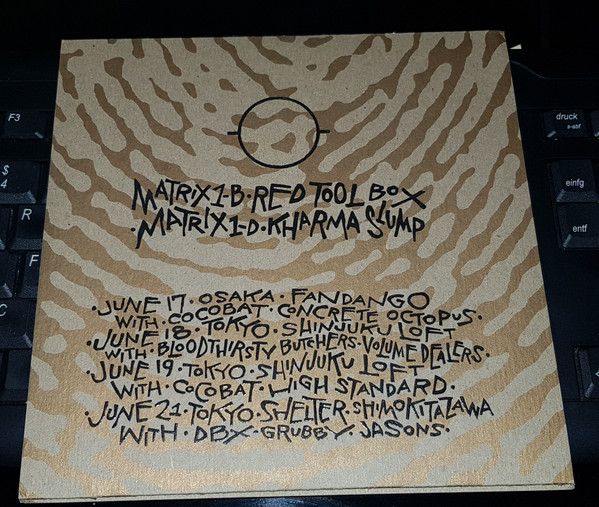 MATRIX 1-B · RED TOOL BOX
· MATRIX 1-D · KHARMA SLUMP
· JUNE 17 · OSAKA · FANDANGO
WITH COCOBAT · CONCRETE OCTOPUS ·
JUNE 18 · TOKYO · SHINJUKU LOFT
WITH · BLOODTHIRSTY BUTCHERS · VOLUME DEALERS ·
· JUNE 19 · TOKYO · SHINJUKU LOFT
WITH · COCOBAT · HIGH STANDARD ·
· JUNE 21 · TOKYO · SHELTER · SHIMOKITAZAWA
WITH · DBX · GRUBBY · JASONS ·
F3
$
4
R
F
C
druck
s-abf
einfg
entf